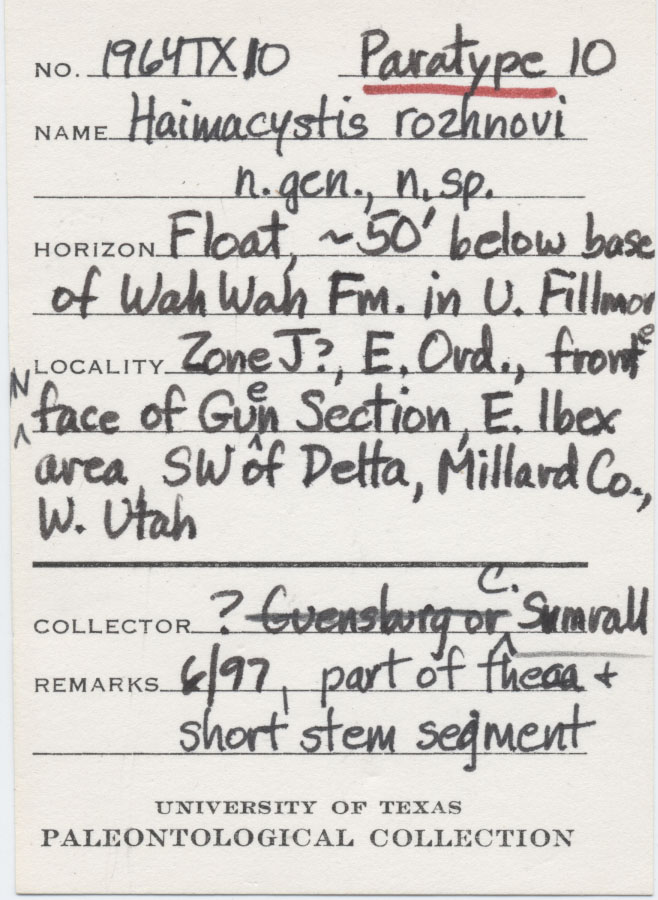 NO. 1964TX10 Paratype 10
NAME Haimacystis rozhnovi
n. gen., n. sp.
HORIZON Float, ~50' below base
of Wah Wah Fm. in U. Fillmore
LOCALITY Zone J?, E. Ord., front
N face of Guen Section, E. Ibex
area SW of Delta, Millard Co.,
W. Utah
COLLECTOR ? Guensburg or C. Sumrall
REMARKS 6/97, part of theca +
short stem segment
UNIVERSITY OF TEXAS
PALEONTOLOGICAL COLLECTION